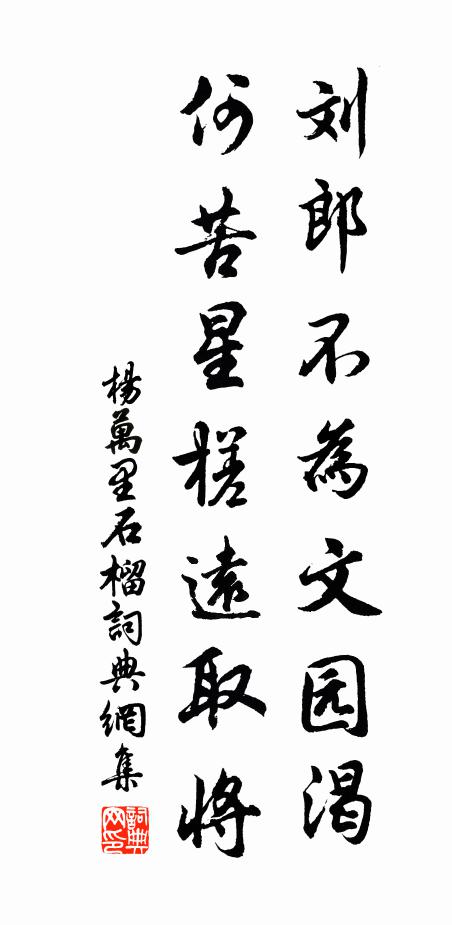 刘郎不為文园渴
何苦星槎遠取将
楊萬里石榴詞典網集
詞典
网印